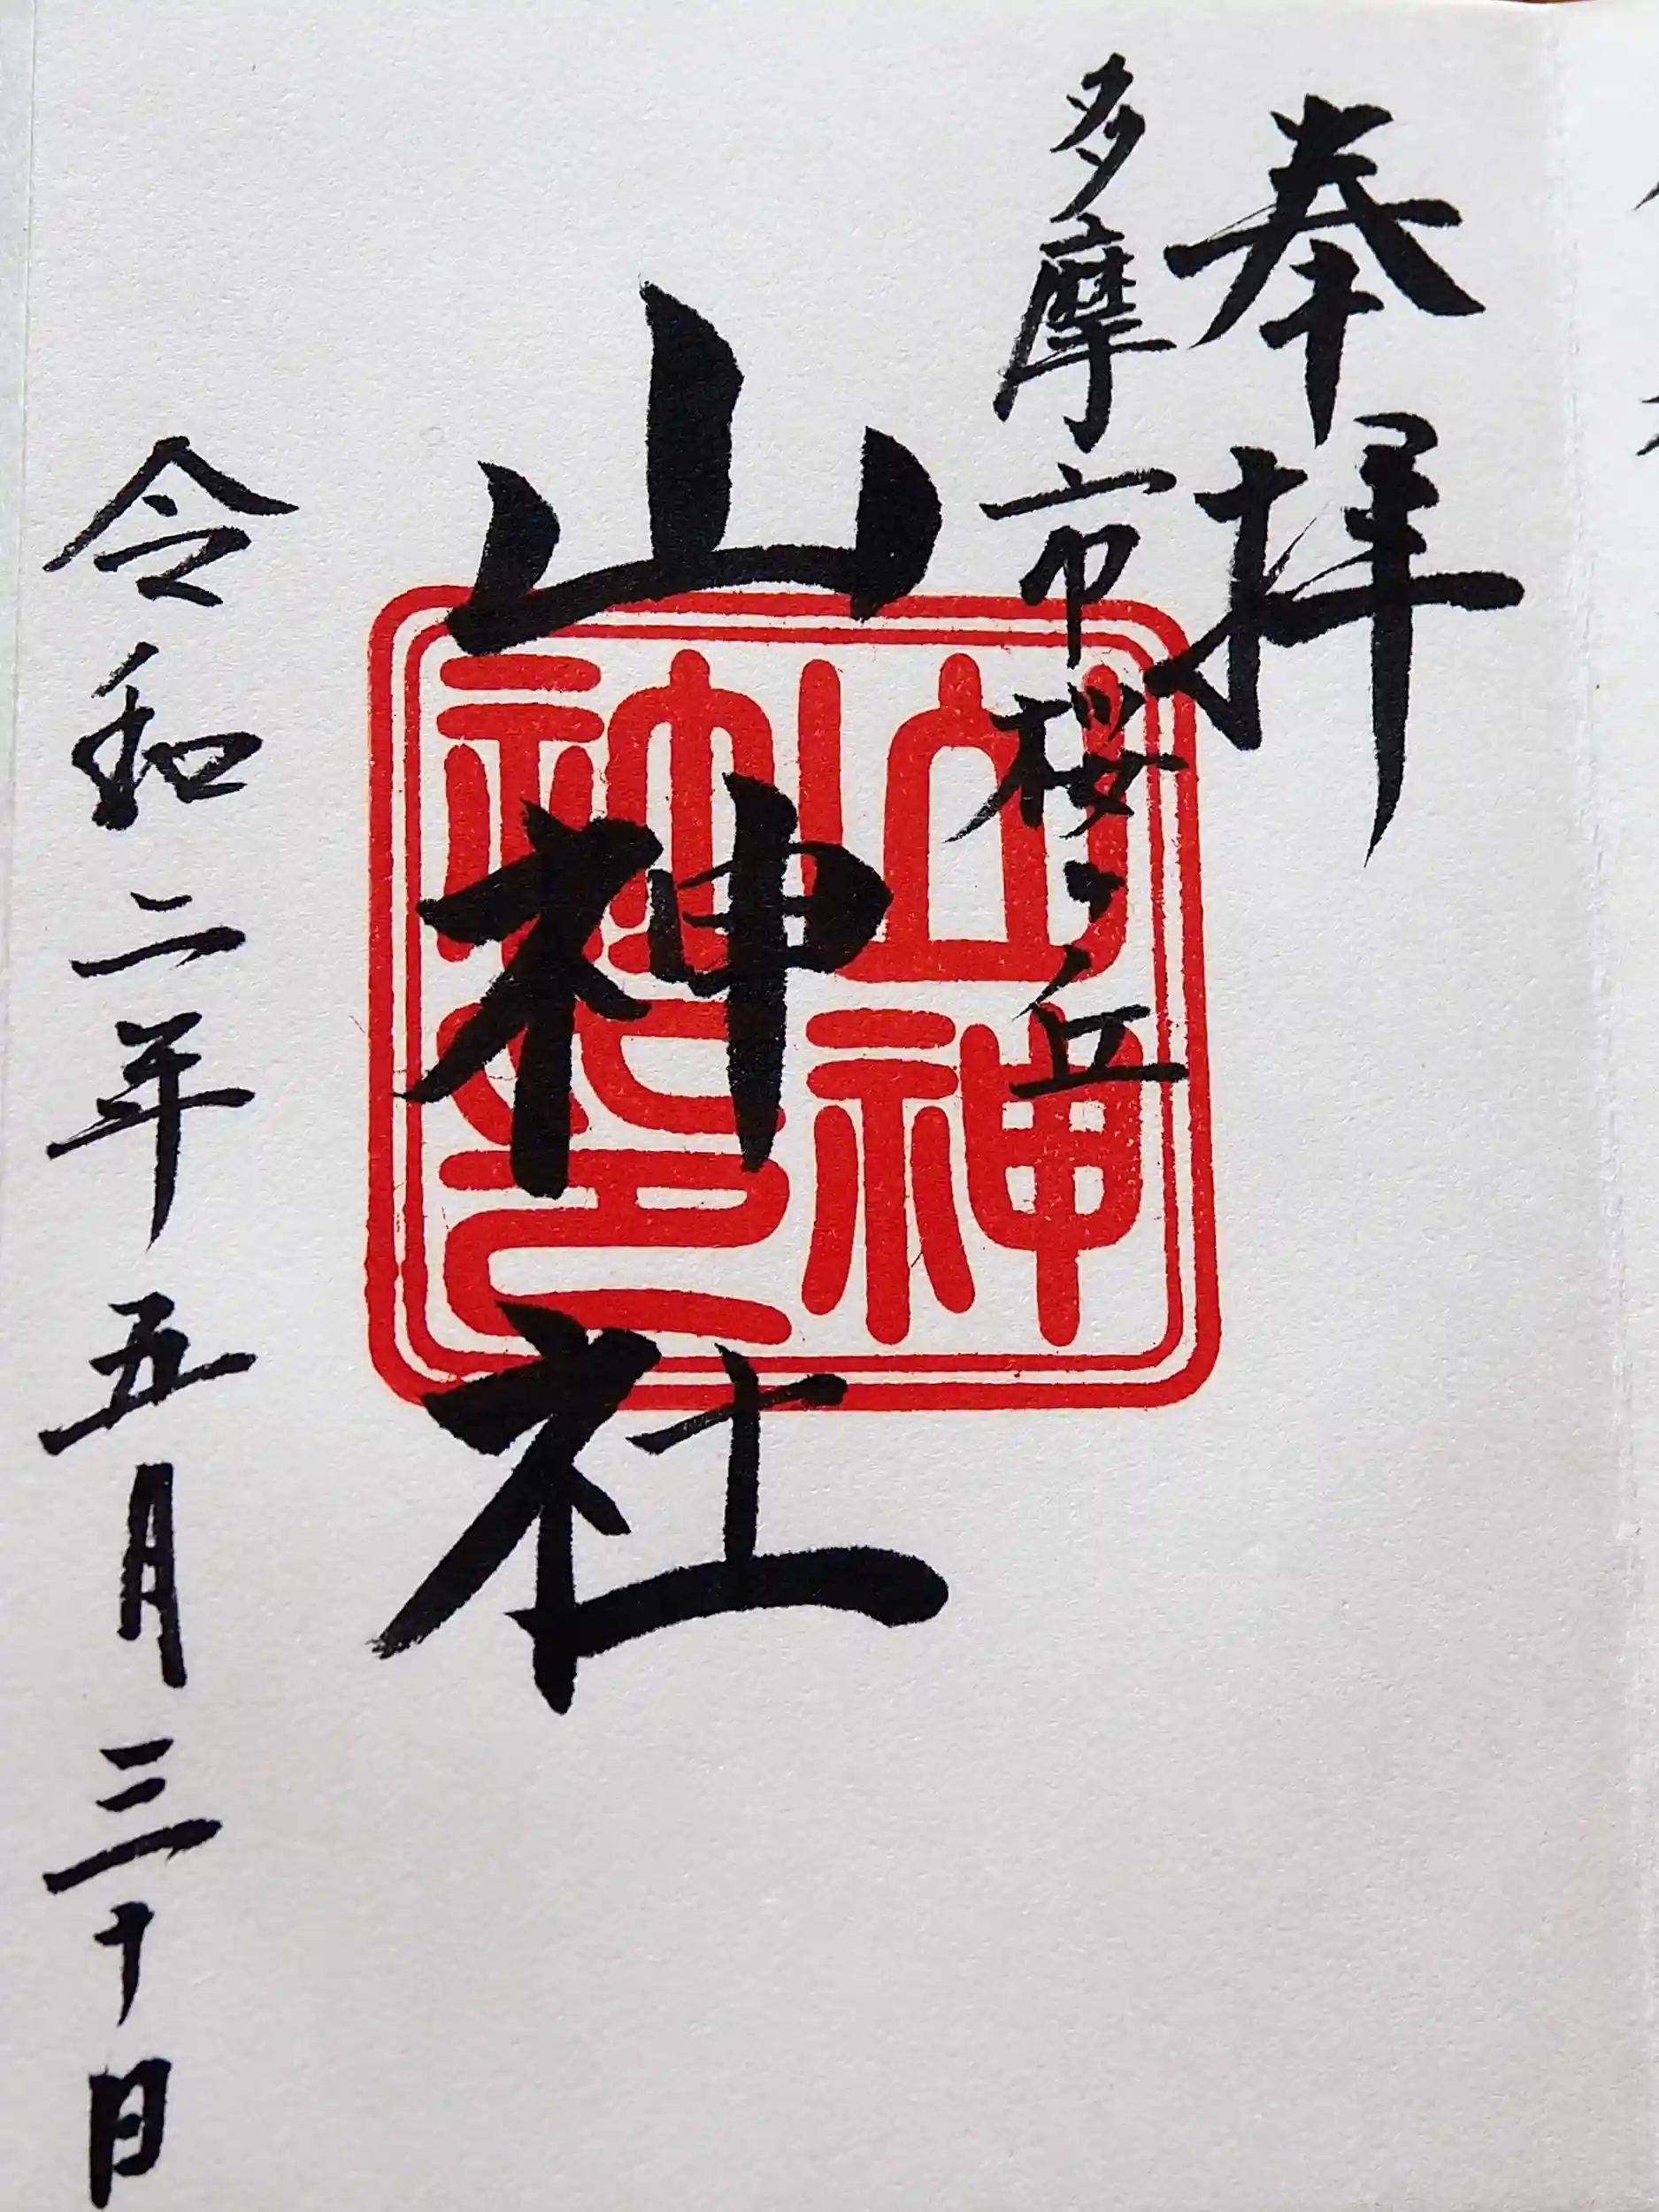 奉拝
多摩市桜ヶ丘
山神社
山神
神社印
令和二年五月三十日